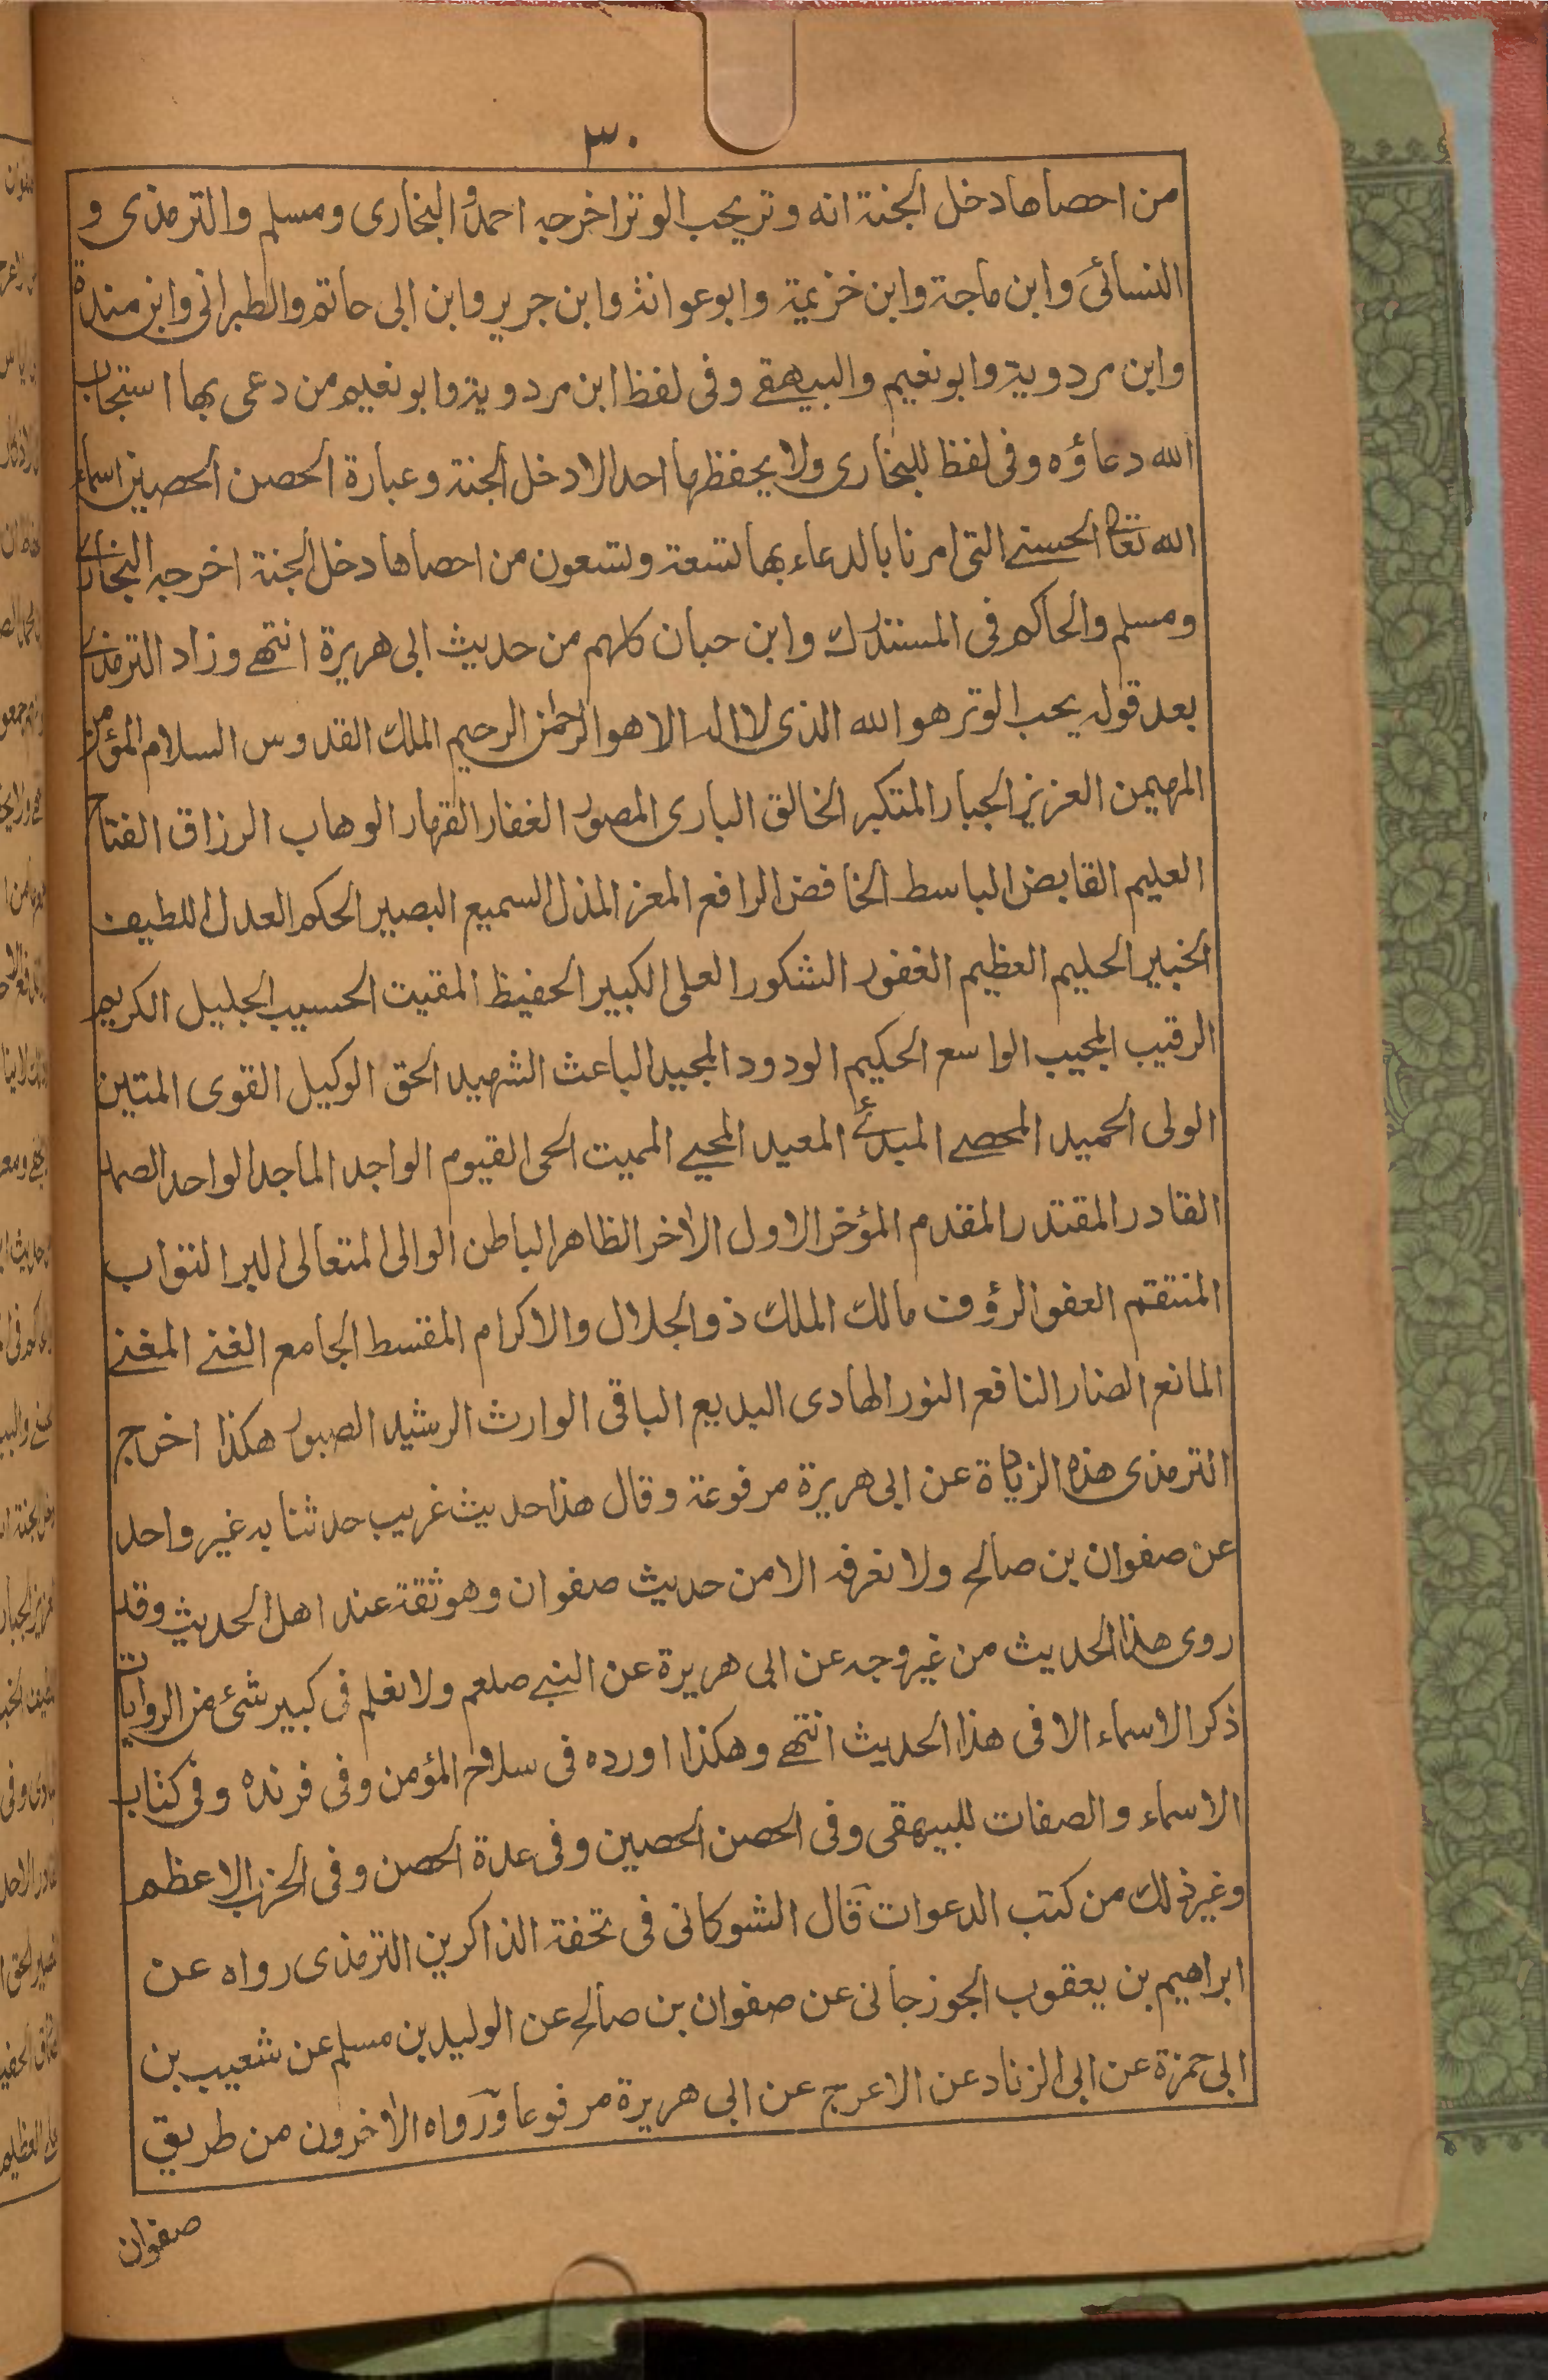 ٣٠
من احصاها دخل الجنة انه وتر يحب الوتر اخرجه احمد والبخارى ومسلم والترمذى و
النسائى وابن ماجة وابن خزيمة وابو عوانة وابن جرير وابن ابى حاتم والطبرانى وابن مندة
وابن مردوية وابو نعيم والبيهقے وفى لفظ ابن مردوية وابو نعيم من دعى بها استجاب
الله دعاؤه وفى لفظ للبخارى ولا يحفظها احد الا دخل الجنة وعبارة الحصن الحصين اسماء
الله تعالى الحسنے التى امرنا بالدعاء بها تسعة وتسعون من احصاها دخل الجنة اخرجه البخارى
ومسلم والحاكم فى المستدرك وابن حبان كلهم من حديث ابى هريرة انتهے وزاد الترمذے
بعد قوله يحب الوتر هو الله الذى لا اله الا هو الرحمن الرحيم الملك القدوس السلام المؤمن
المهيمن العزيز الجبار المتكبر الخالق البارى المصور الغفار القهار الوهاب الرزاق الفتاح
العليم القابض الباسط الخافض الرافع المعز المذل السميع البصير الحكم العدل اللطيف
الخبير الحليم العظيم الغفور الشكور العلى الكبير الحفيظ المقيت الحسيب الجليل الكريم
الرقيب المجيب الواسع الحكيم الودود المجيد الباعث الشهيد الحق الوكيل القوى المتين
الولى الحميد المحصے المبدئ المعيد المحيے المميت الحى القيوم الواجد الماجد الواحد الصمد
القادر المقتدر المقدم المؤخر الاول الاخر الظاهر الباطن الوالى المتعالى البر التواب
المنتقم العفو الرؤف مالك الملك ذو الجلال والاكرام المقسط الجامع الغنے المغنے
المانع الضار النافع النور الهادى البديع الباقى الوارث الرشيد الصبور هكذا اخرج
الترمذى هذه الزيادة عن ابى هريرة مرفوعة وقال هذا حديث غريب حدثنا به غير واحد
عن صفوان بن صالح ولا نعرفه الا من حديث صفوان وهو ثقة عند اهل الحديث وقد
روى هذا الحديث من غير وجه عن ابى هريرة عن النبے صلعم ولا نعلم فى كبير شئ من الروايات
ذكر الاسماء الا فى هذا الحديث انتهے وهكذا اورده فى سلاح المؤمن وفى فرنده وفى كتاب
الاسماء والصفات للبيهقى وفى الحصن الحصين وفى عدة الحصن وفى الحزب الاعظم
وغير ذلك من كتب الدعوات قال الشوكانى فى تحفة الذاكرين الترمذى رواه عن
ابراهيم بن يعقوب الجوزجانى عن صفوان بن صالح عن الوليد بن مسلم عن شعيب بن
ابى حمزة عن ابى الزناد عن الاعرج عن ابى هريرة مرفوعا ورواه الاخرون من طريق
صفوان